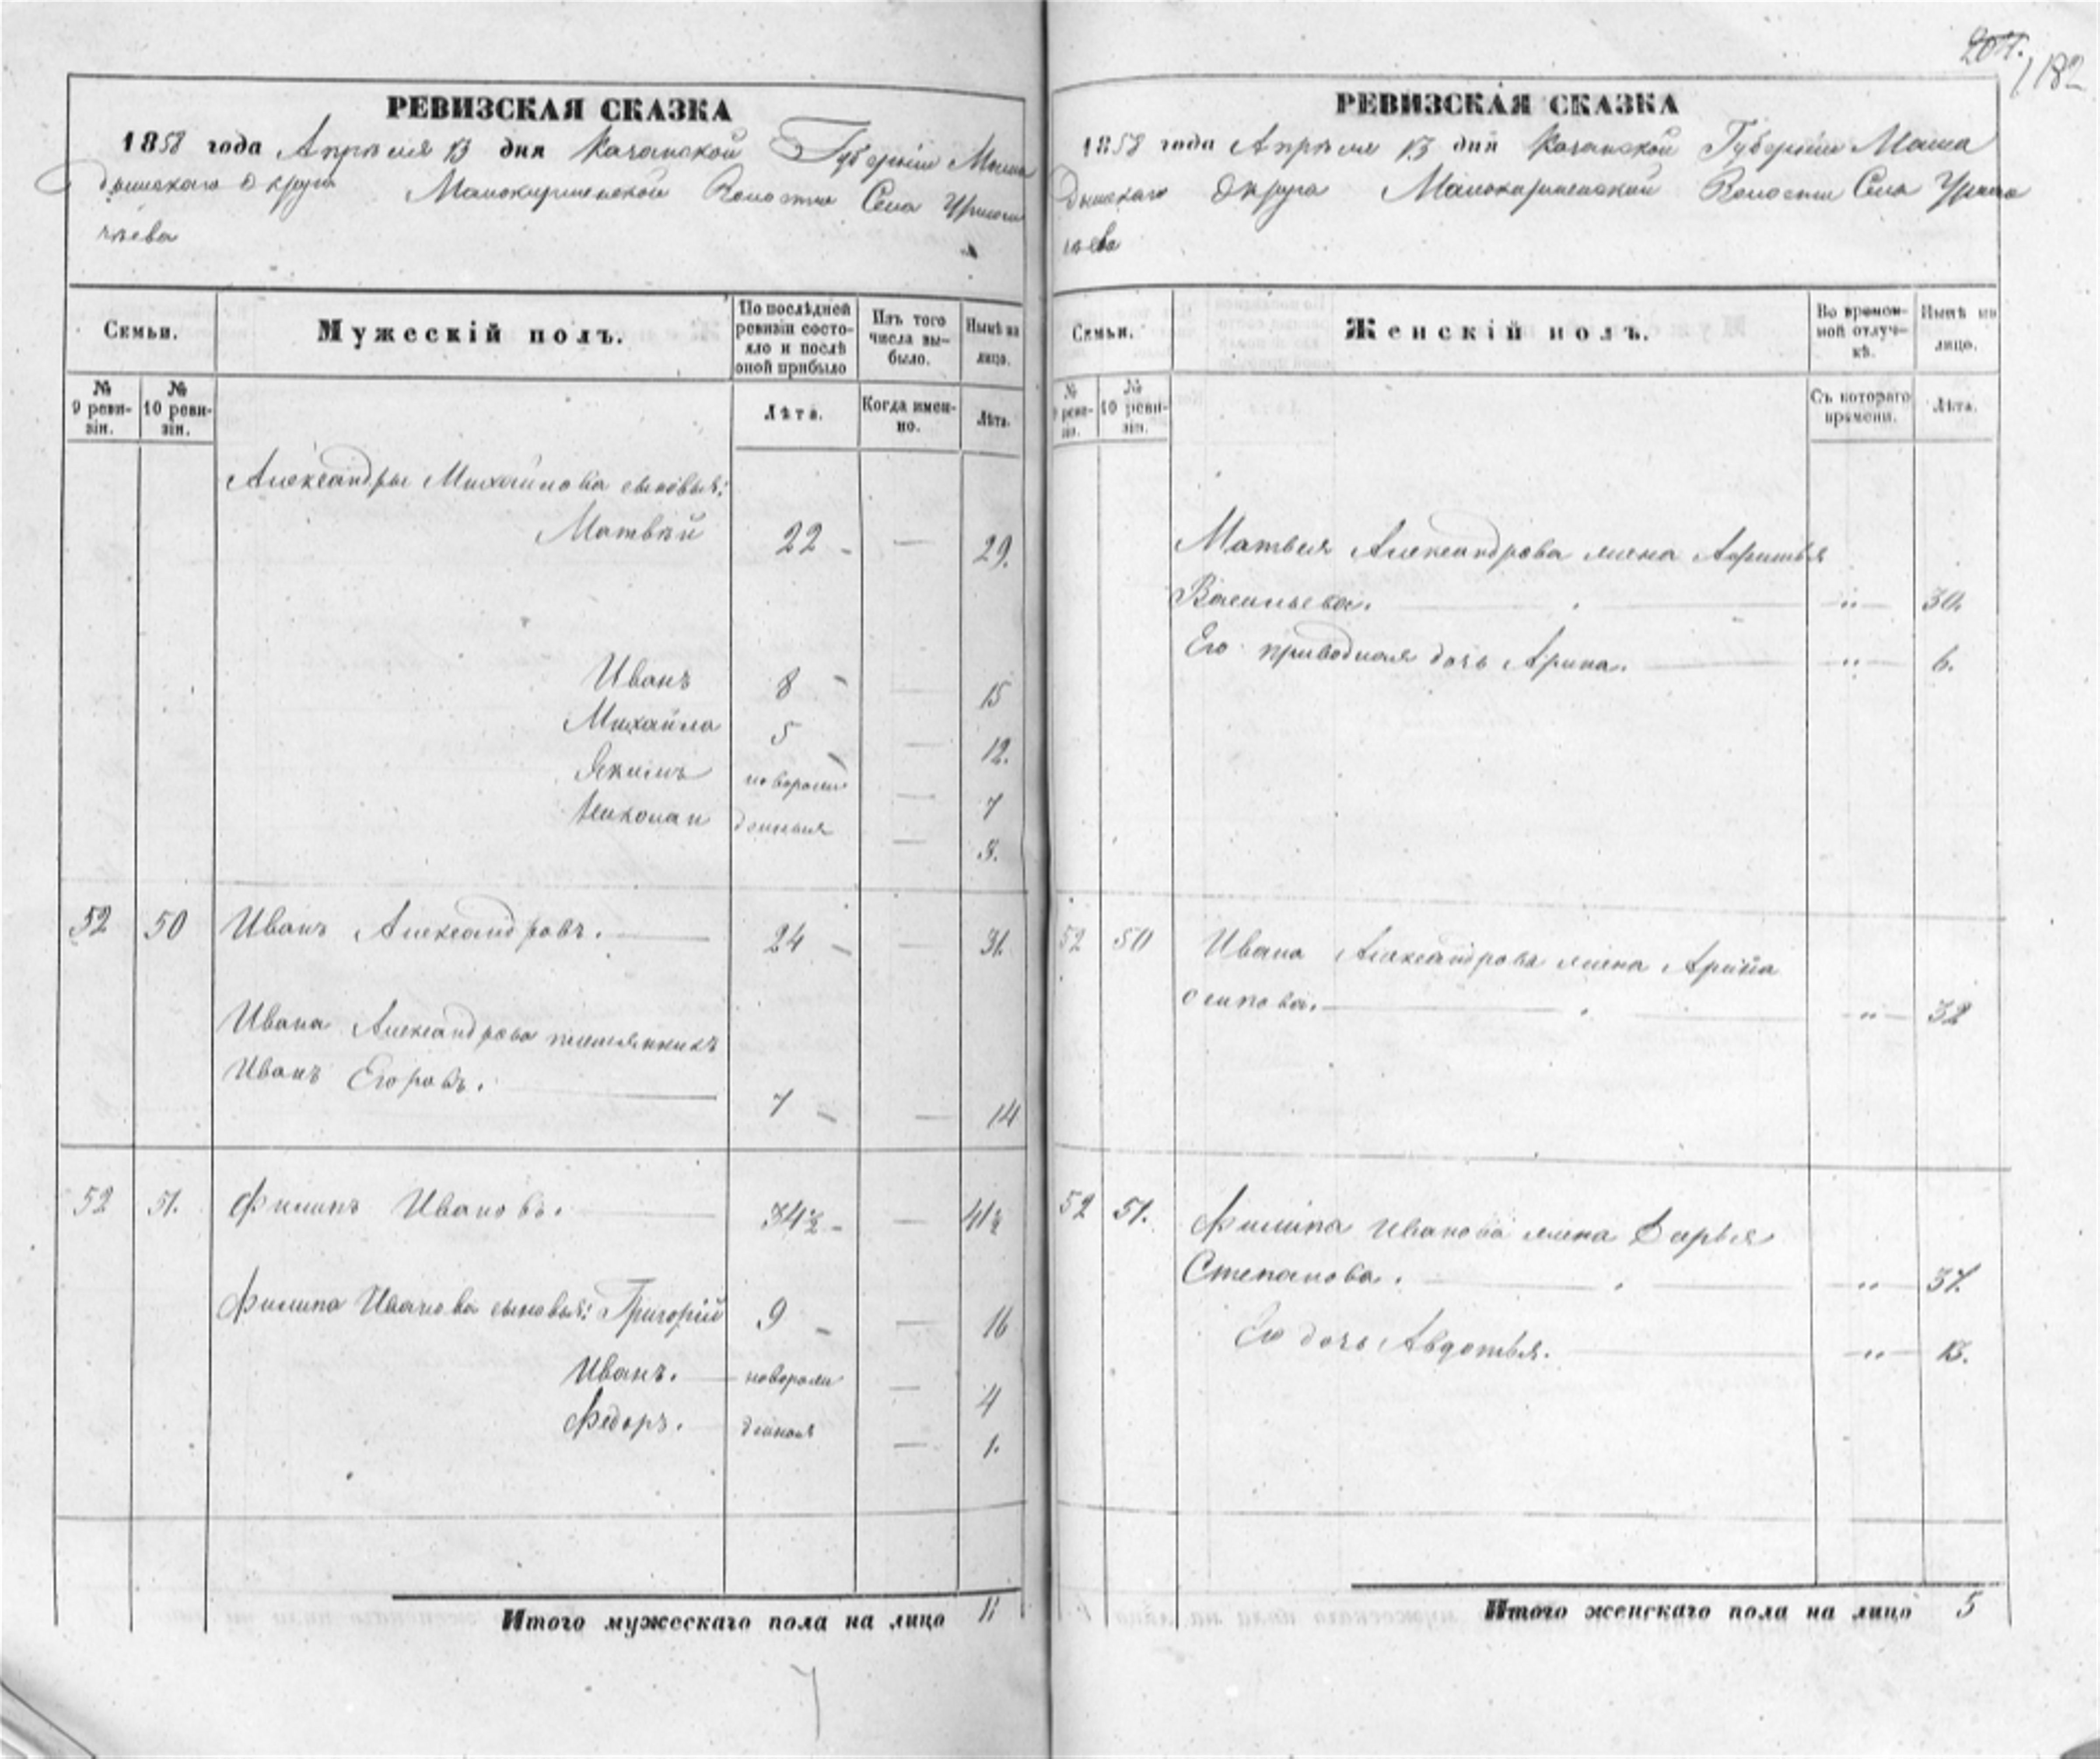 204.
182
РЕВИЗСКАЯ СКАЗКА
1858 года Апрѣля 13 дня Казанской Губерніи Мама
дышскаго Округа Малокирменской Волости Села Урмом
чѣева
Семьи.
Мужескій полъ.
По послѣдней ревизіи состояло и послѣ оной прибыло
Изъ того числа выбыло.
Нынѣ на лицо.
№ 9 ревизіи.
№ 10 ревизіи.
Лѣта.
Когда именно.
Лѣта.
Александры Михайлова сыновья:
Матвѣй 22 — 29.
Иванъ 8 — 15
Михайла 5 — 12.
Якимъ новорож — 7
Николай денныя — 3.
52 50 Иванъ Александровъ. 24 — 31.
Ивана Александрова племянникъ
Иванъ Егоровъ. 7 — 14
52 51. Филипъ Ивановъ. 34½ — 41½
Филипа Иванова сыновья: Григорій 9 — 16
Иванъ. новорож — 4
Федоръ. денныя — 1.
Итого мужескаго пола на лицо 11
РЕВИЗСКАЯ СКАЗКА
1858 года Апрѣля 13 дня Казанской Губерніи Мама
дышскаго Округа Малокирменской Волости Села Урмам
чѣева
Семьи.
Женскій полъ.
Во временной отлучкѣ.
Нынѣ на лицо.
№ 9 ревизіи.
№ 10 ревизіи.
Съ котораго времени.
Лѣта.
Матвея Александрова жена
Васильева. „ 30.
Его приводная дочь Арина. „ 6.
52 50 Ивана Александрова жена Арина
Осипова. „ 32
52 51. Филипа Иванова жена Дарья
Степанова. „ 37.
Его дочь Авдотья. „ 13.
Итого женскаго пола на лицо 5